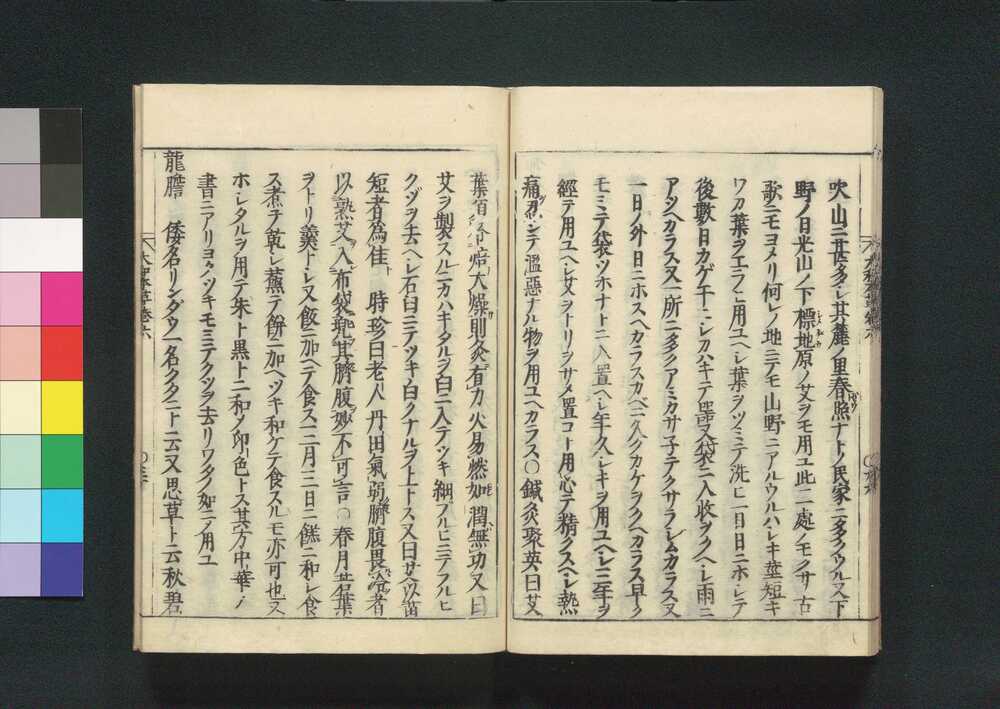 吹山ニ甚多シ其麓ノ里春照ナトノ民家ニ多クウル又下
野ノ日光山ノ下標地原ノ艾ヲモ用ユ此二處ノモクサ古
歌ニモヨメリ何レノ地ニテモ山野ニアルウルハシキ莖短キ
ワカ葉ヲエラヒ用ユヘシ葉ヲツミテ洗ヒ一日日ニホシテ
後數日カゲ干ニシカハキテ不又袋ニ入收ヲクヘシ雨ニ
アツヘカラス又一所ニ多クアミカサ子テクサラシムカラス又
一日ノ外日ニホスヘカラスカベニ久クカケヲクヘカラス早ク
モミテ袋ツホナトニ入置ヘシ年久シキヲ用ユヘシ三年ヲ
經テ用ユヘシ艾ヲトリヲサメ置コト用心テ精クスヘシ熱
痛カシテ濫惡ナル物ヲ用ユヘカラス〇鍼灸聚英曰艾
葉 焙大燥則灸有力火易燃如潤無功又曰
艾ヲ製スルニカハキタルヲ臼ニ入テツキ細フルヒニテフルヒ
クヅヲ去ヘシ石臼ニテツキ白クナルヲ上トス又曰艾以苗
短者爲佳 時珍曰老人丹田氣弱臍腹畏冷者
以熟艾入布袋兜其臍腹妙不可言〇春月若葉
ヲトリ羹トシ又飯ニ加ニテ食ス三月三日ニ餻ニ和シ食
ス煮テ乾シ蒸テ餅ニ加ヘツキ和ケテ食スルモ亦可也又
ホシタルヲ用テ朱ト黒トニ和メ印色トス其方中華ノ
書ニアリヨクツキモミテクツヲ去リワタノ如ニメ用ユ
龍膽 倭名リンダウ一名クタニト云又思草ト云秋碧